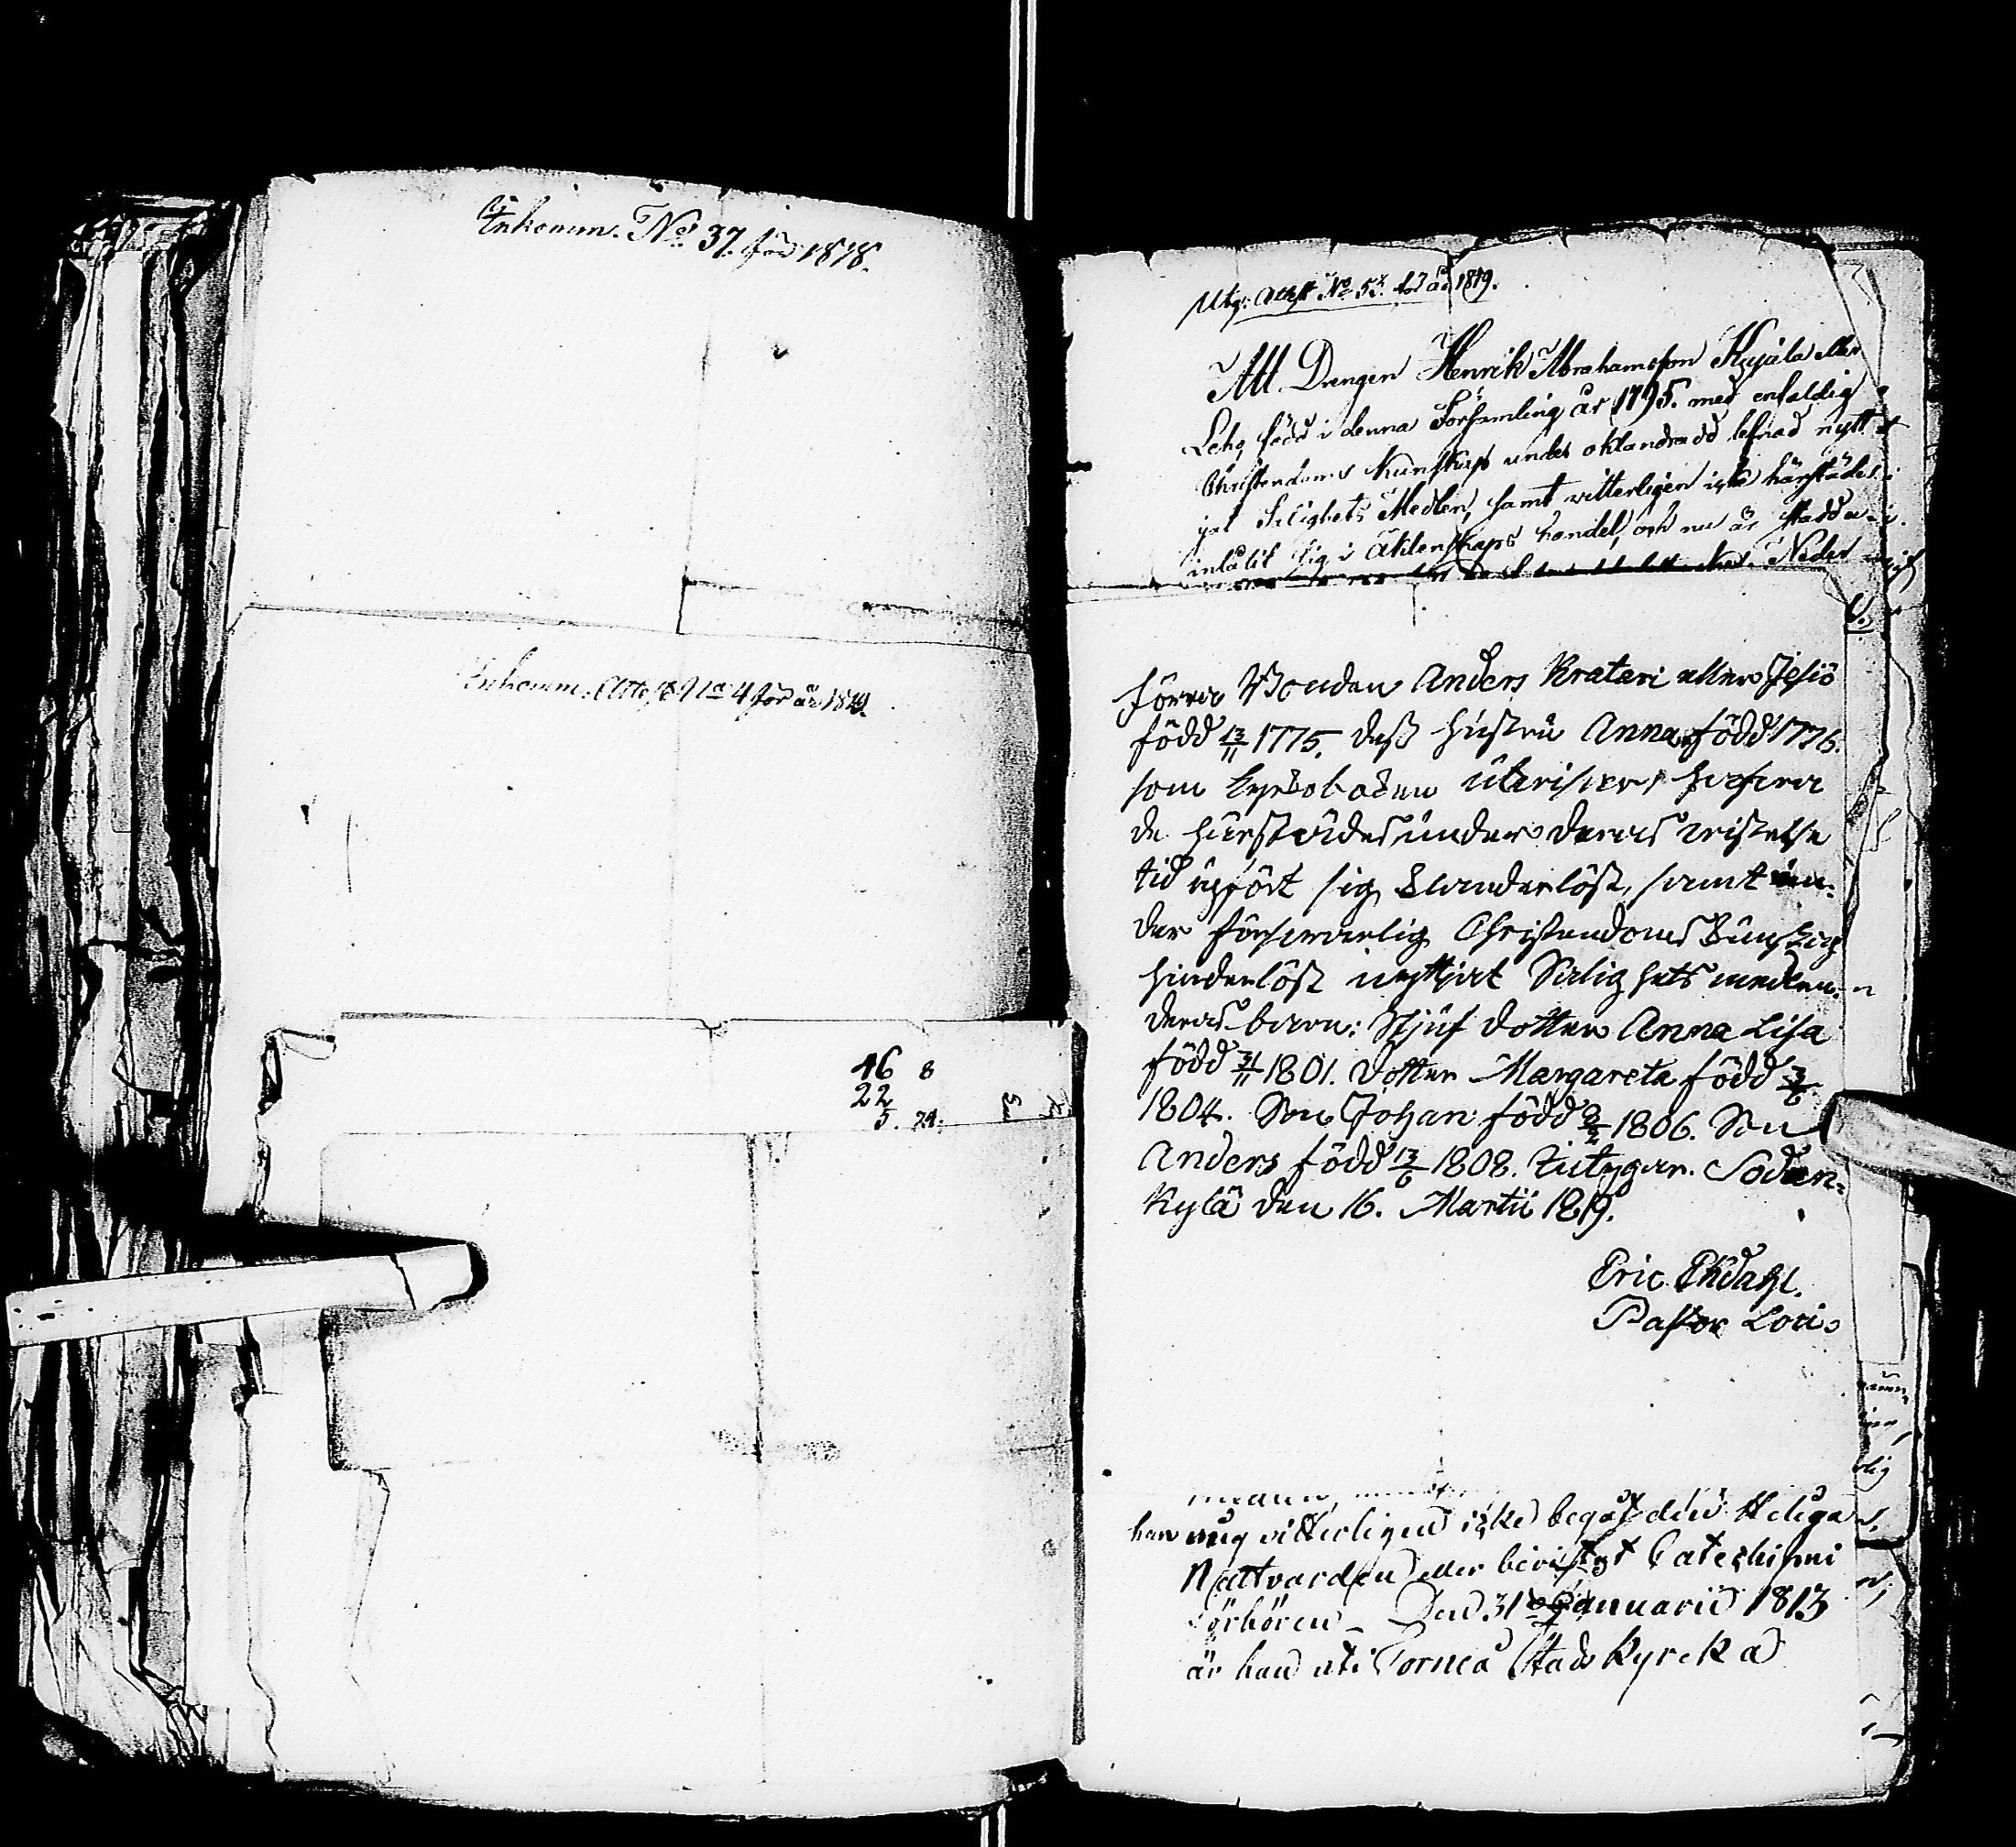 Inkomm. No 37. för 1818.
Inkomm. Attest No 4 för år 1819.
16 8
22
5. 74.
Utg: Attest No 52. för år 1819.
Att Drengen Henrik Abrahamsson Kyälä eller
Leho född i denna Församling år 1795. med enfaldig
Christendoms kunskap under oklandradd lefnad nytt-
jat Salighets Medlen, samt vitterligen icke härstädes
inlåtit sig i Äktenskaps handel, och nu är stadd
Neder
förra Bonden Anders Krateri eller Jesiö
född 13/11 1775. dess hustru Anna född 1776.
som Kyrkoboken utvisar, hafva
de härstädes under deras vistelse
tid upfört sig klanderlöst, samt un-
der försvarlig Christendoms kunskap
hinderlöst nyttjat Salighets medlen.
deras barn: Stjuf dotter Anna Lisa
född 3/11 1801. dotter Margareta född 3/6
1804. Son Johan född 2/2 1806. Son
Anders född 13/6 1808. Witygar. Sodan-
kylä den 16. Martii 1819.
Eric Ekdahl.
Pastor Loci.
han mig vitterligen icke begåt den Heliga
Nattvarden eller bivistat Catechismi
Förhören _ Den 31 Januarii 1813
är han uti Torneå Stads Kyrcka